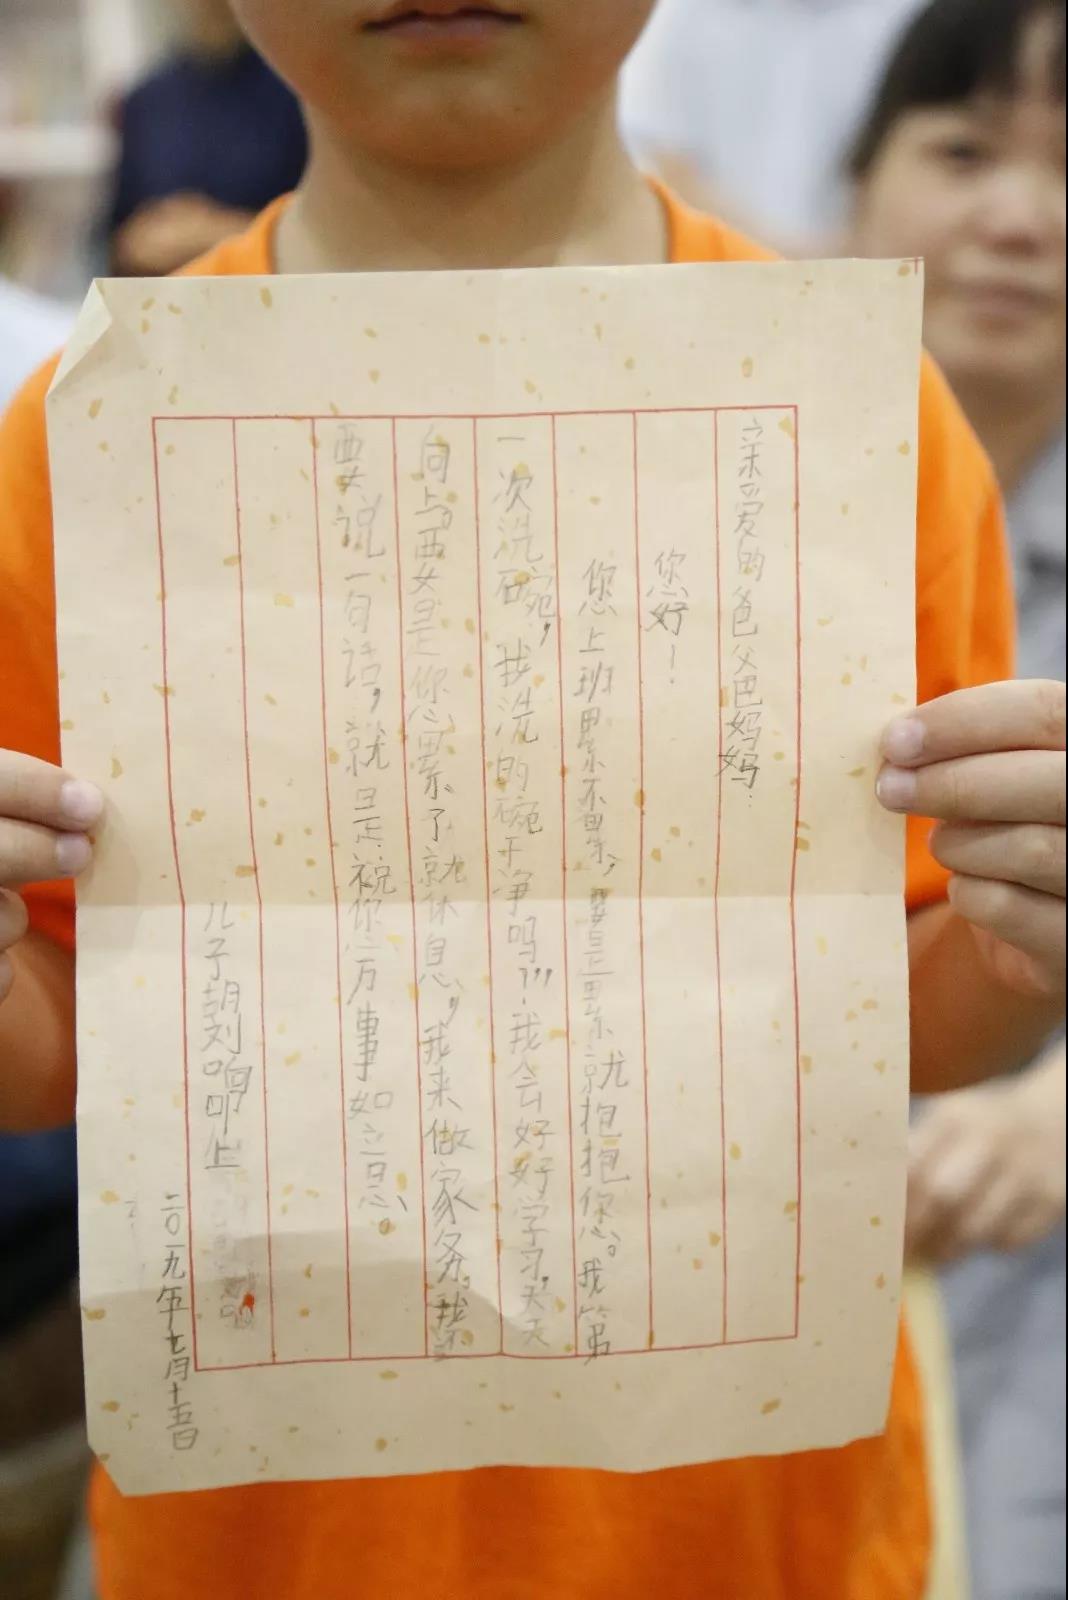 亲爱的爸爸妈妈：
您好！
您上班累不累，要是累就抱抱您。我第
一次洗碗，我洗的碗干净吗？”我会好好学习，天天
向上。要是您累了就休息，我来做家务。我还
要说一句话，就是祝您万事如意。
儿子胡刘响叩上
二〇一九年七月十五日